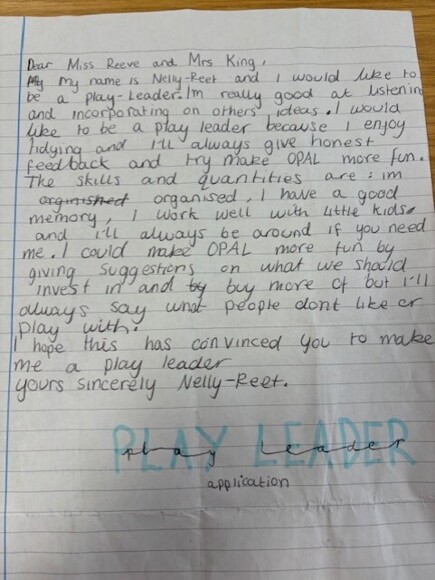 Dear Miss Reeve and Mrs King,
My my name is Nelly-Reet and I would like to
be a play-Leader. I'm really good at listening
and incorporating on others' ideas. I would
like to be a play leader because I enjoy
tidying and I'll always give honest
feedback and try make OPAL more fun.
The skills and quantities are : im
organised, I have a good
memory, I work well with little kids
and I'll always be around if you need
me. I could make OPAL more fun by
giving suggestions on what we should
invest in and by buy more of but I'll
always say what people dont like or
play with.
I hope this has convinced you to make
me a play leader
yours sincerely Nelly-Reet.
PLAY LEADER
play leader
application